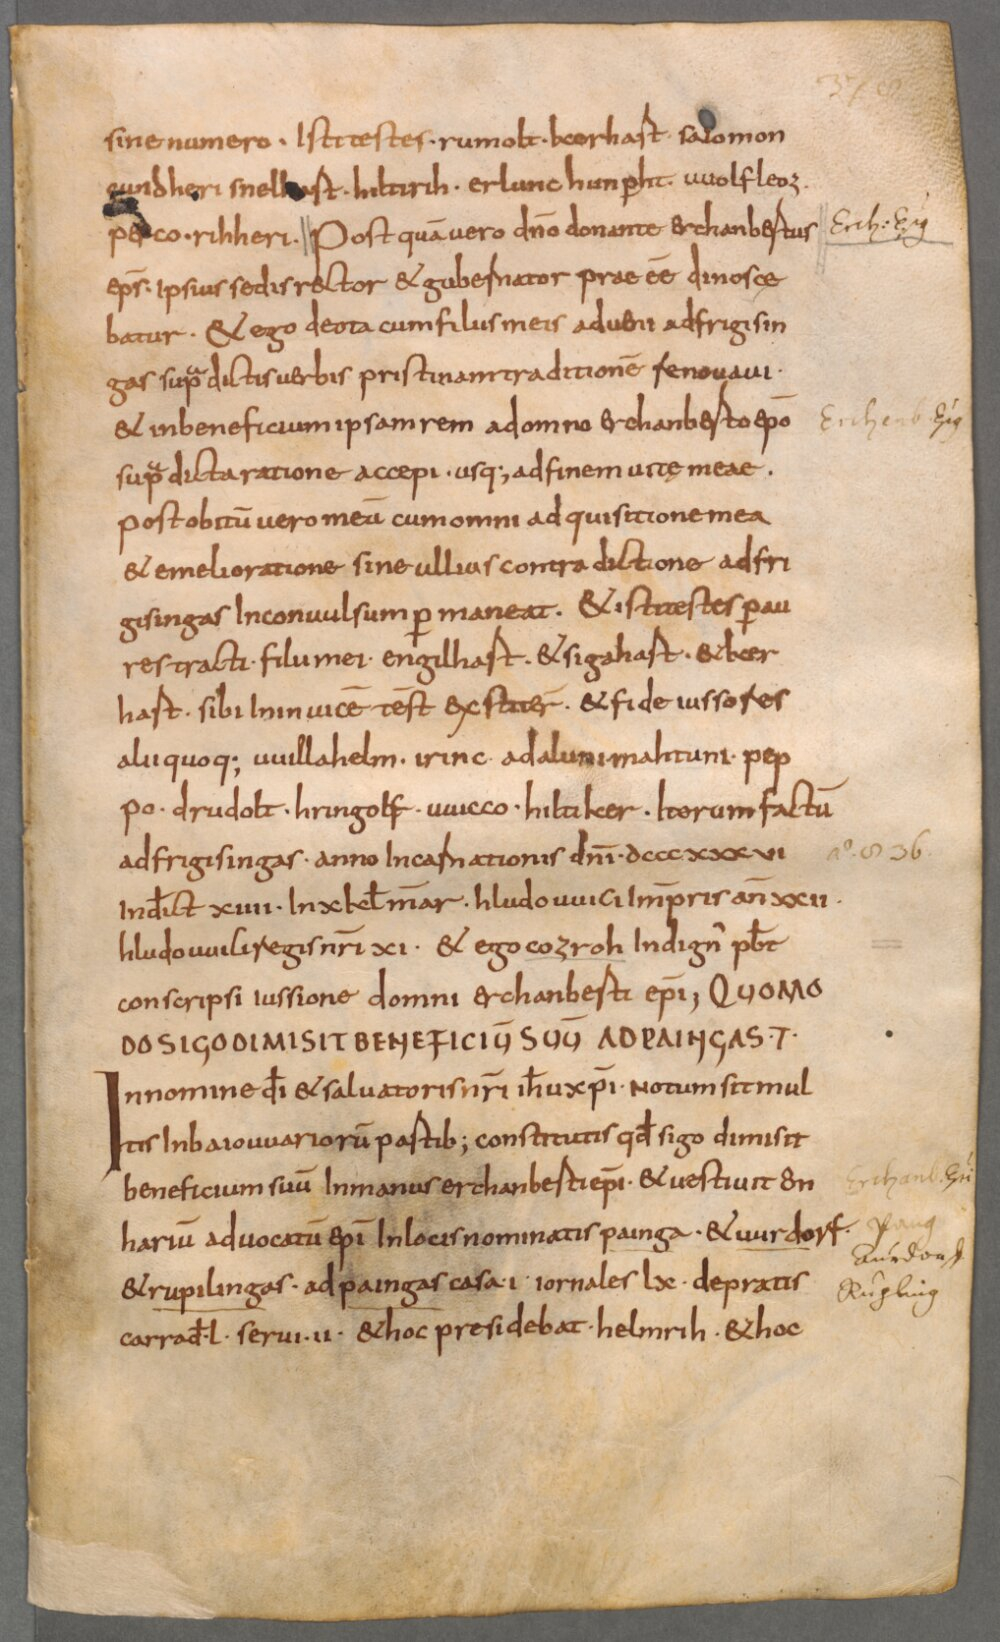 sine numero · Isti testes · rumolt · kerhast · salomon
cundheri snelhast · hiltirih · erlunc hunꝑht · uuolfleoz ·
peꝛco · rihheri · Post quā vero dn̄o donante erchanbertus
Erch: Epg
ep̄s · ipsius sedis rector & gubernator prae ēē dinosce
batur · & ego deota cum filiis meis adveni ad frigisin
gas sup͛a dictis verbis pristinam traditionē renovavi ·
& in beneficium ipsam rem a domno erchanberto ep̄o
sup͛a dicta ratione accepi · usq; ad finem vitę meae ·
post obitū vero meū cum omni adquisitione mea
& emelioratione sine ullius contradictione ad fri
gisingas Inconvulsum ꝑmaneat · & isti testes ꝑ au
res tracti · filii mei · engilhast · & sigahast · & ker
hast · sibi Ininvicē tēst exstiter̄ · & fideiussores
alii quoq; uuillahelm · irinc · adaluni · mahtuni · pep
po · drudolt · hringolf · uuicco · hiltiker · Hoc rum factū
ad frigisingas · anno Incarnationis dn̄i · dcccxxxvi
aº · 836 ·
Ind̄ict xiiii · In x kł mar̄ · hludouuici Imp̄ris an̄ xxii ·
hludouuici regis nr̄i xi · & ego cozroh Indign᾽ pb̄t
conscripsi iussione domni erchanberti ep̄i; QUOMO
DO SIGO DIMISIT BENEFICIŪ SUŪ AD PAINGAS · T ·
In nomine d̄i & salvatoris nr̄i ih̄u xp̄i · Notum sit mul
tis In baiouuariorū partib; constitutis qd̄ sigo dimisit
beneficium suū In manus erchanberti ep̄i · & vestivit en
hariū advocatū ep̄i In locis nominatis painga · & uurdorf ·
Pang
Aurdorf
& rupilingas · ad paingas casa · i · iornales lx · de pratis
Rupling
carrad̄ · l · servi · ii · & hoc presidebat · helmrih · & hoc